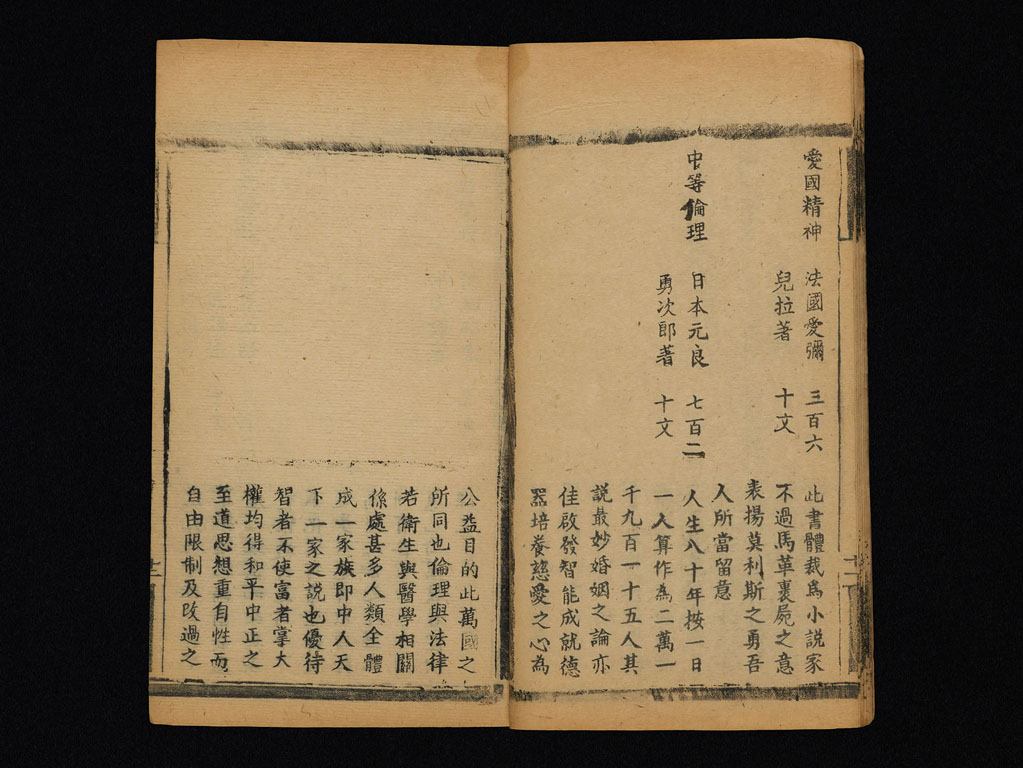 愛國精神
法國愛彌
兒拉著
三百六
十文
此書體裁為小説家
不過馬革裏屍之意
表揚莫利斯之勇吾
人所當留意
中等倫理
日本元良
勇次郎著
七百二
十文
人生八十年按一日
一入算作為二萬一
千九百一十五人其
説最妙婚姻之論亦
佳啟發智能成就德
器培養慈愛之心為
公益目的此萬國之
所同也倫理與法律
若衛生與醫學相關
係處甚多人類全體
成一家族即中人天
下一家之説也優待
智者不使富者掌大
權均得和平中正之
至道思想重自性而
自由限制及改過之